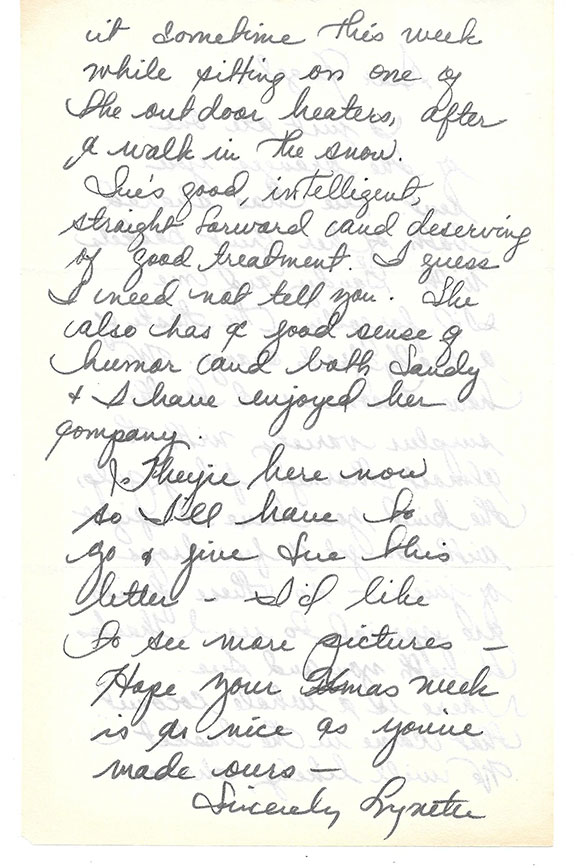 it sometime this week
while sitting on one of
the outdoor heaters, after
a walk in the snow.
Sue's good, intelligent,
straight forward and deserving
of good treatment. I guess
I need not tell you. She
also has a good sense of
humor and both Sandy
& I have enjoyed her
company.
They're here now
so I'll have to
go & give Sue this
letter - I'd like
to see more pictures -
Hope your Xmas week
is as nice as you've
made ours -
Sincerely Lynette